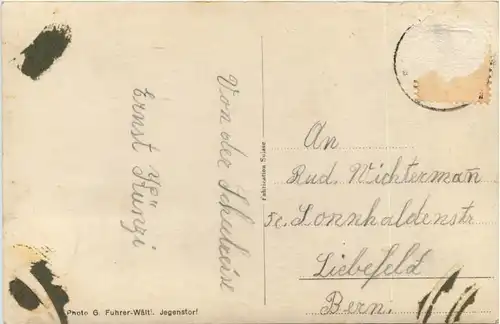 Von der Schulreise
Ernst Künzi
Fabrication Suisse
An
Rud. Wichterman̄
Sonnhaldenstr
Liebefeld
Bern.
Photo G. Fuhrer-Wälti. Jegenstorf